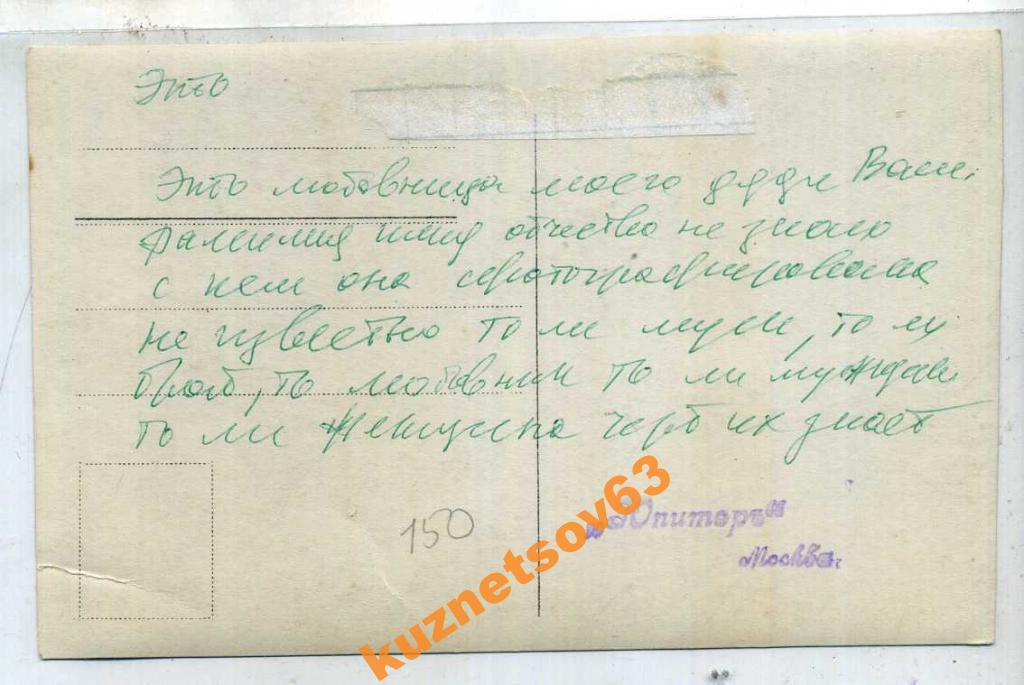 Это
Это любовница моего дяди Васи
Фамилия имя отчество не знаю
с кем она сфотографирована
не известно то ли муж, то ли
брат, то любовник то ли мужчина
то ли женщина черт их знает
150
„Юпитеръ"
Москва.
kuznetsov63